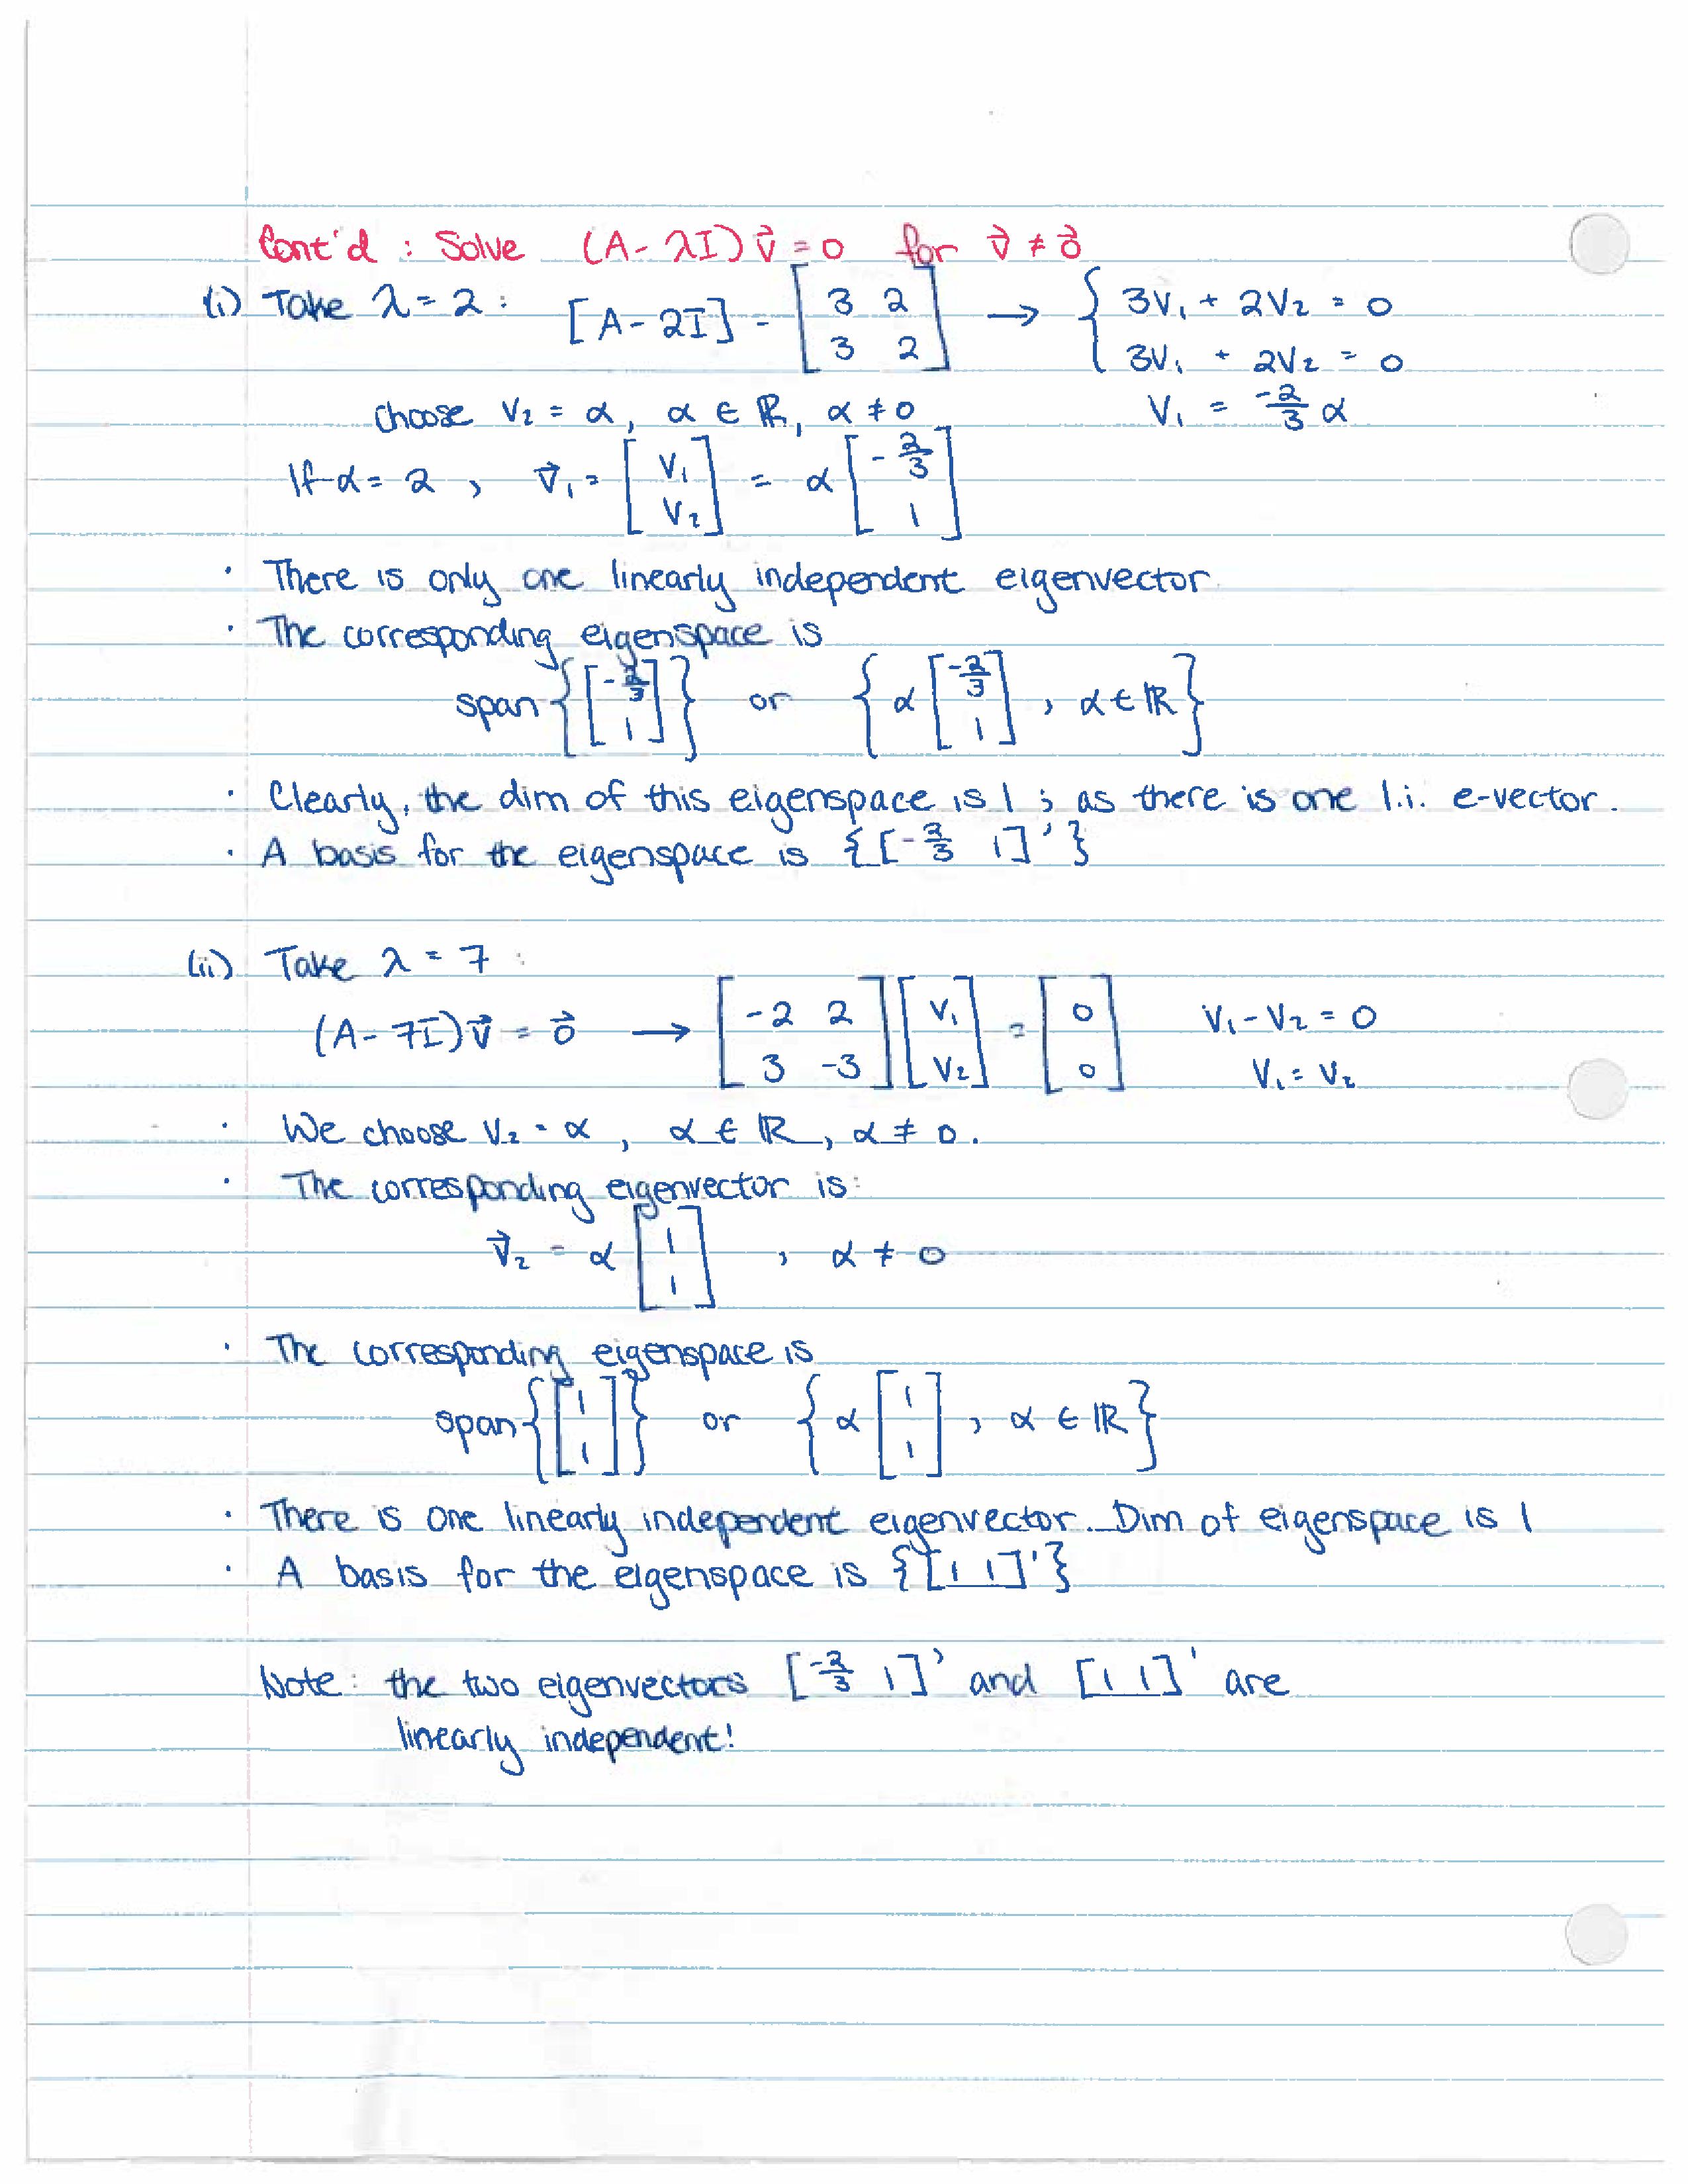 Cont'd : Solve (A - λI) v⃗ = 0 for v⃗ ≠ 0⃗
(i) Take λ = 2 : [A - 2I] = [3 2; 3 2] → { 3V₁ + 2V₂ = 0
3V₁ + 2V₂ = 0
choose V₂ = α, α ∈ ℝ, α ≠ 0 V₁ = -2/3 α
If α = 2 , v⃗₁ = [V₁; V₂] = α [-2/3; 1]
· There is only one linearly independent eigenvector.
· The corresponding eigenspace is
span{[-2/3; 1]} or {α [-2/3; 1] , α ∈ ℝ}
· Clearly, the dim of this eigenspace is 1 ; as there is one l.i. e-vector.
· A basis for the eigenspace is {[-2/3 1]'}
(ii) Take λ = 7 :
(A - 7I) v⃗ = 0⃗ → [-2 2; 3 -3] [V₁; V₂] = [0; 0] V₁ - V₂ = 0
V₁ = V₂
· We choose V₂ = α , α ∈ ℝ , α ≠ 0.
· The corresponding eigenvector is:
v⃗₂ = α [1; 1] , α ≠ 0
· The corresponding eigenspace is
span{[1; 1]} or {α [1; 1] , α ∈ ℝ}
· There is one linearly independent eigenvector. Dim of eigenspace is 1
· A basis for the eigenspace is {[1 1]'}
Note: the two eigenvectors [-2/3 1]' and [1 1]' are
linearly independent!